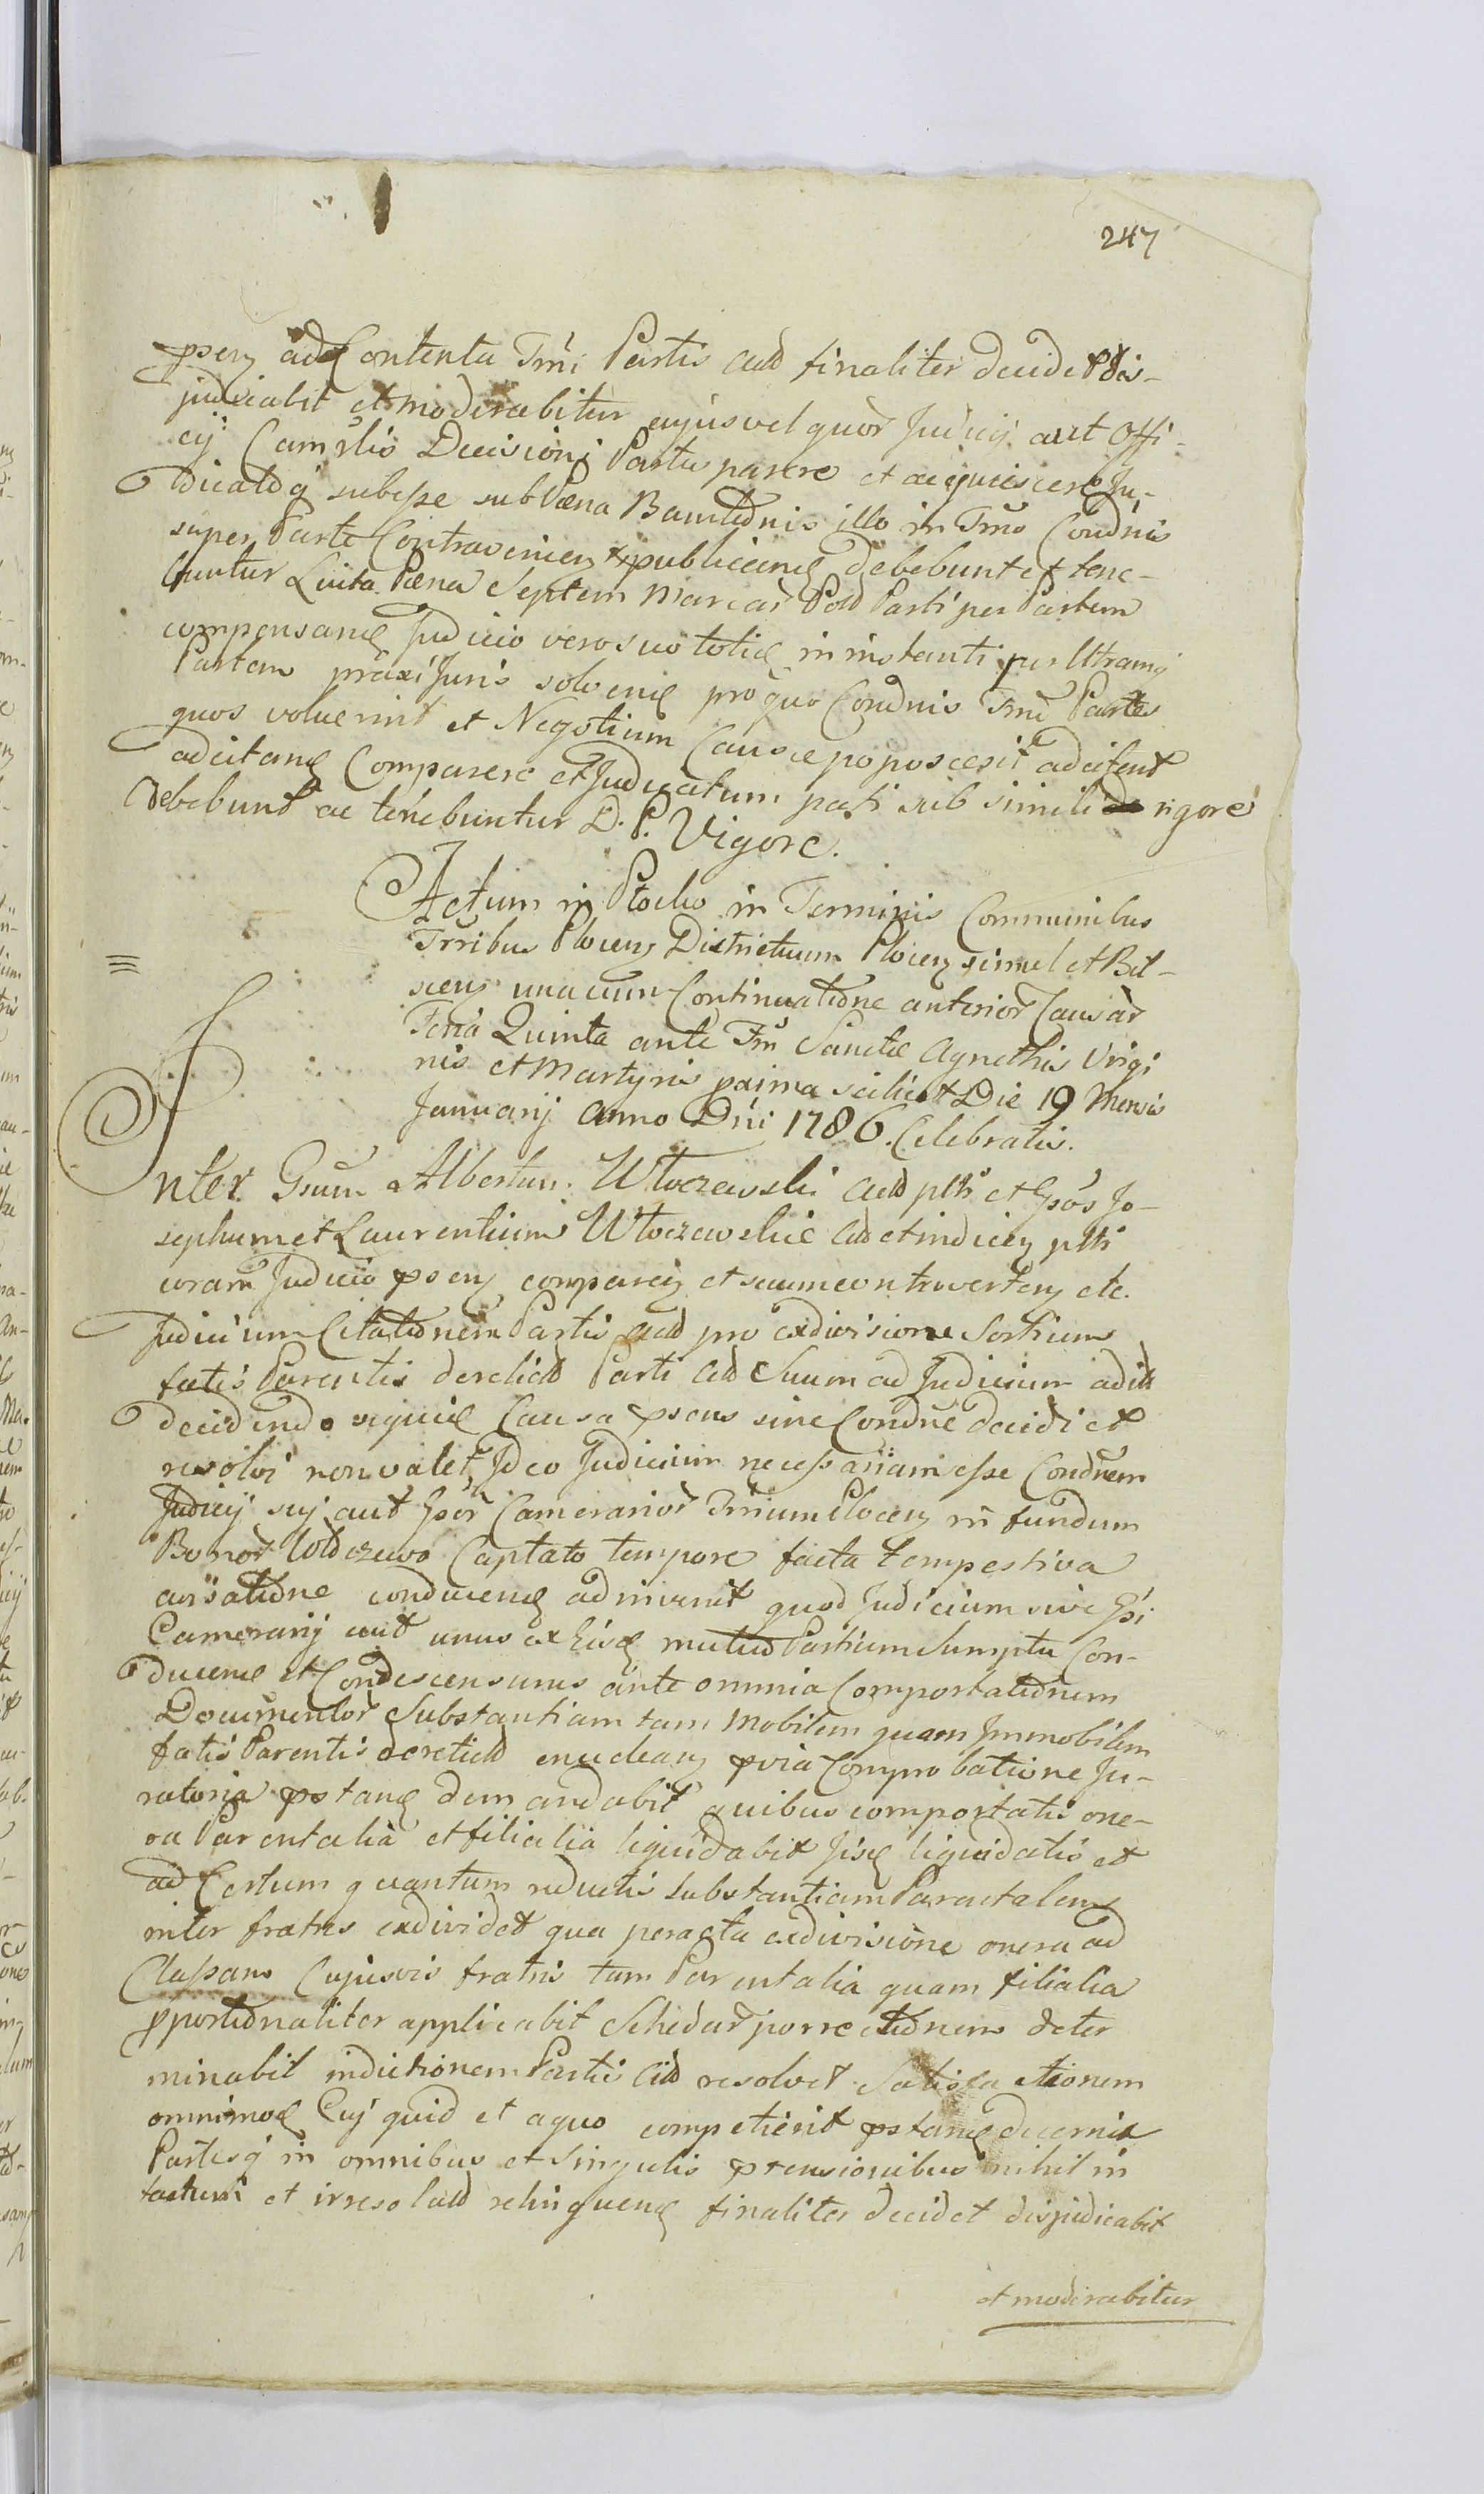 247
psen ad Contenta Trni Partis Actt finaliter decidet dis-
judicabit et moderabitur cujus vel quor Judicij aut Offi-
cij Camrlis Decisioni Partes parere et acquiescere Ju-
dicatoq subesse sub Pœna Bannitōnis illo in Trno Condnis
super Parte Contravenien publicand debebunt et tene-
buntur Luita Pœna Septem Marcar Poll Parti per Partem
compensand Judicio vero suo toties in instanti per Utramq
Partem praxi Juris solvend pro quo Condnis Trno Partes
quos voluerint et Negotium Causæ poposcerit adcitent
adcitand Comparere et Judicatum pati sub simili rigore
debebunt ac tenebuntur D. P. Vigore.
Actum in Płocko in Terminis Communibus
Trribus Plocen Districtuum Plocen simul et Bil-
scen unacum Continuatōne anterior Causar
Feria Quinta ante Fm Sanctæ Agnethis Virgi
nis et Martyris proxima scilicet Die 19 Mensis
Januarij Anno Dni 1786. Celebratis.
Inter Gsum Albertum Włoczewski Actt pltt et Gsos Jo-
sephum et Laurentium Włoczewskie Citt et indicen pltt
coram Judicio psen comparen et secum controverten etc.
Judicium Citatōnem Partis Actt pro exdivisione Sortium
fatis Parentis derelict Parti Citt Suum ad Judicium aditt
decidendo siquid Causa psens sine Condne decidi et
resolvi non valet, Ideo Judicium necessariam esse Condnem
Judicij sui aut Gsor Camerarior Trrium Plocen in fundum
Bonor Włoczewo Captato tempore facta tempestiva
avisatōne conducend adinvenit quod Judicium sive Gsi
Camerarij aut unus ex Eisd mutuo Partium Sumptu Con-
ducend et Condescensurus ante omnia Comportatōnem
Documentor Substantiam tam Mobilem quam Immobilem
fatis Parentis derelict enuclean pvia Comprobatione Ju-
ratoria pstand demandabit quibus comportatis one-
ra Parentalia et filialia liquidabit Iisq liquidatis et
ad Certum quantum reductis Substantiam Parentalem
inter fratres exdividet qua peracta exdivisione onera ad
Classam Cujusvis fratris tam Parentalia quam filialia
pportōnaliter applicabit Schedar porrectōnem deter
minabit indictionem Partis Citt resolvet Satisfactionem
omnimod Cuj quid et a quo competierit pstand decernet
Partesq in omnibus et Singulis ptensionibus nihil in
tactum et irresolutt relinquend finaliter decidet disjudicabit
et moderabitur